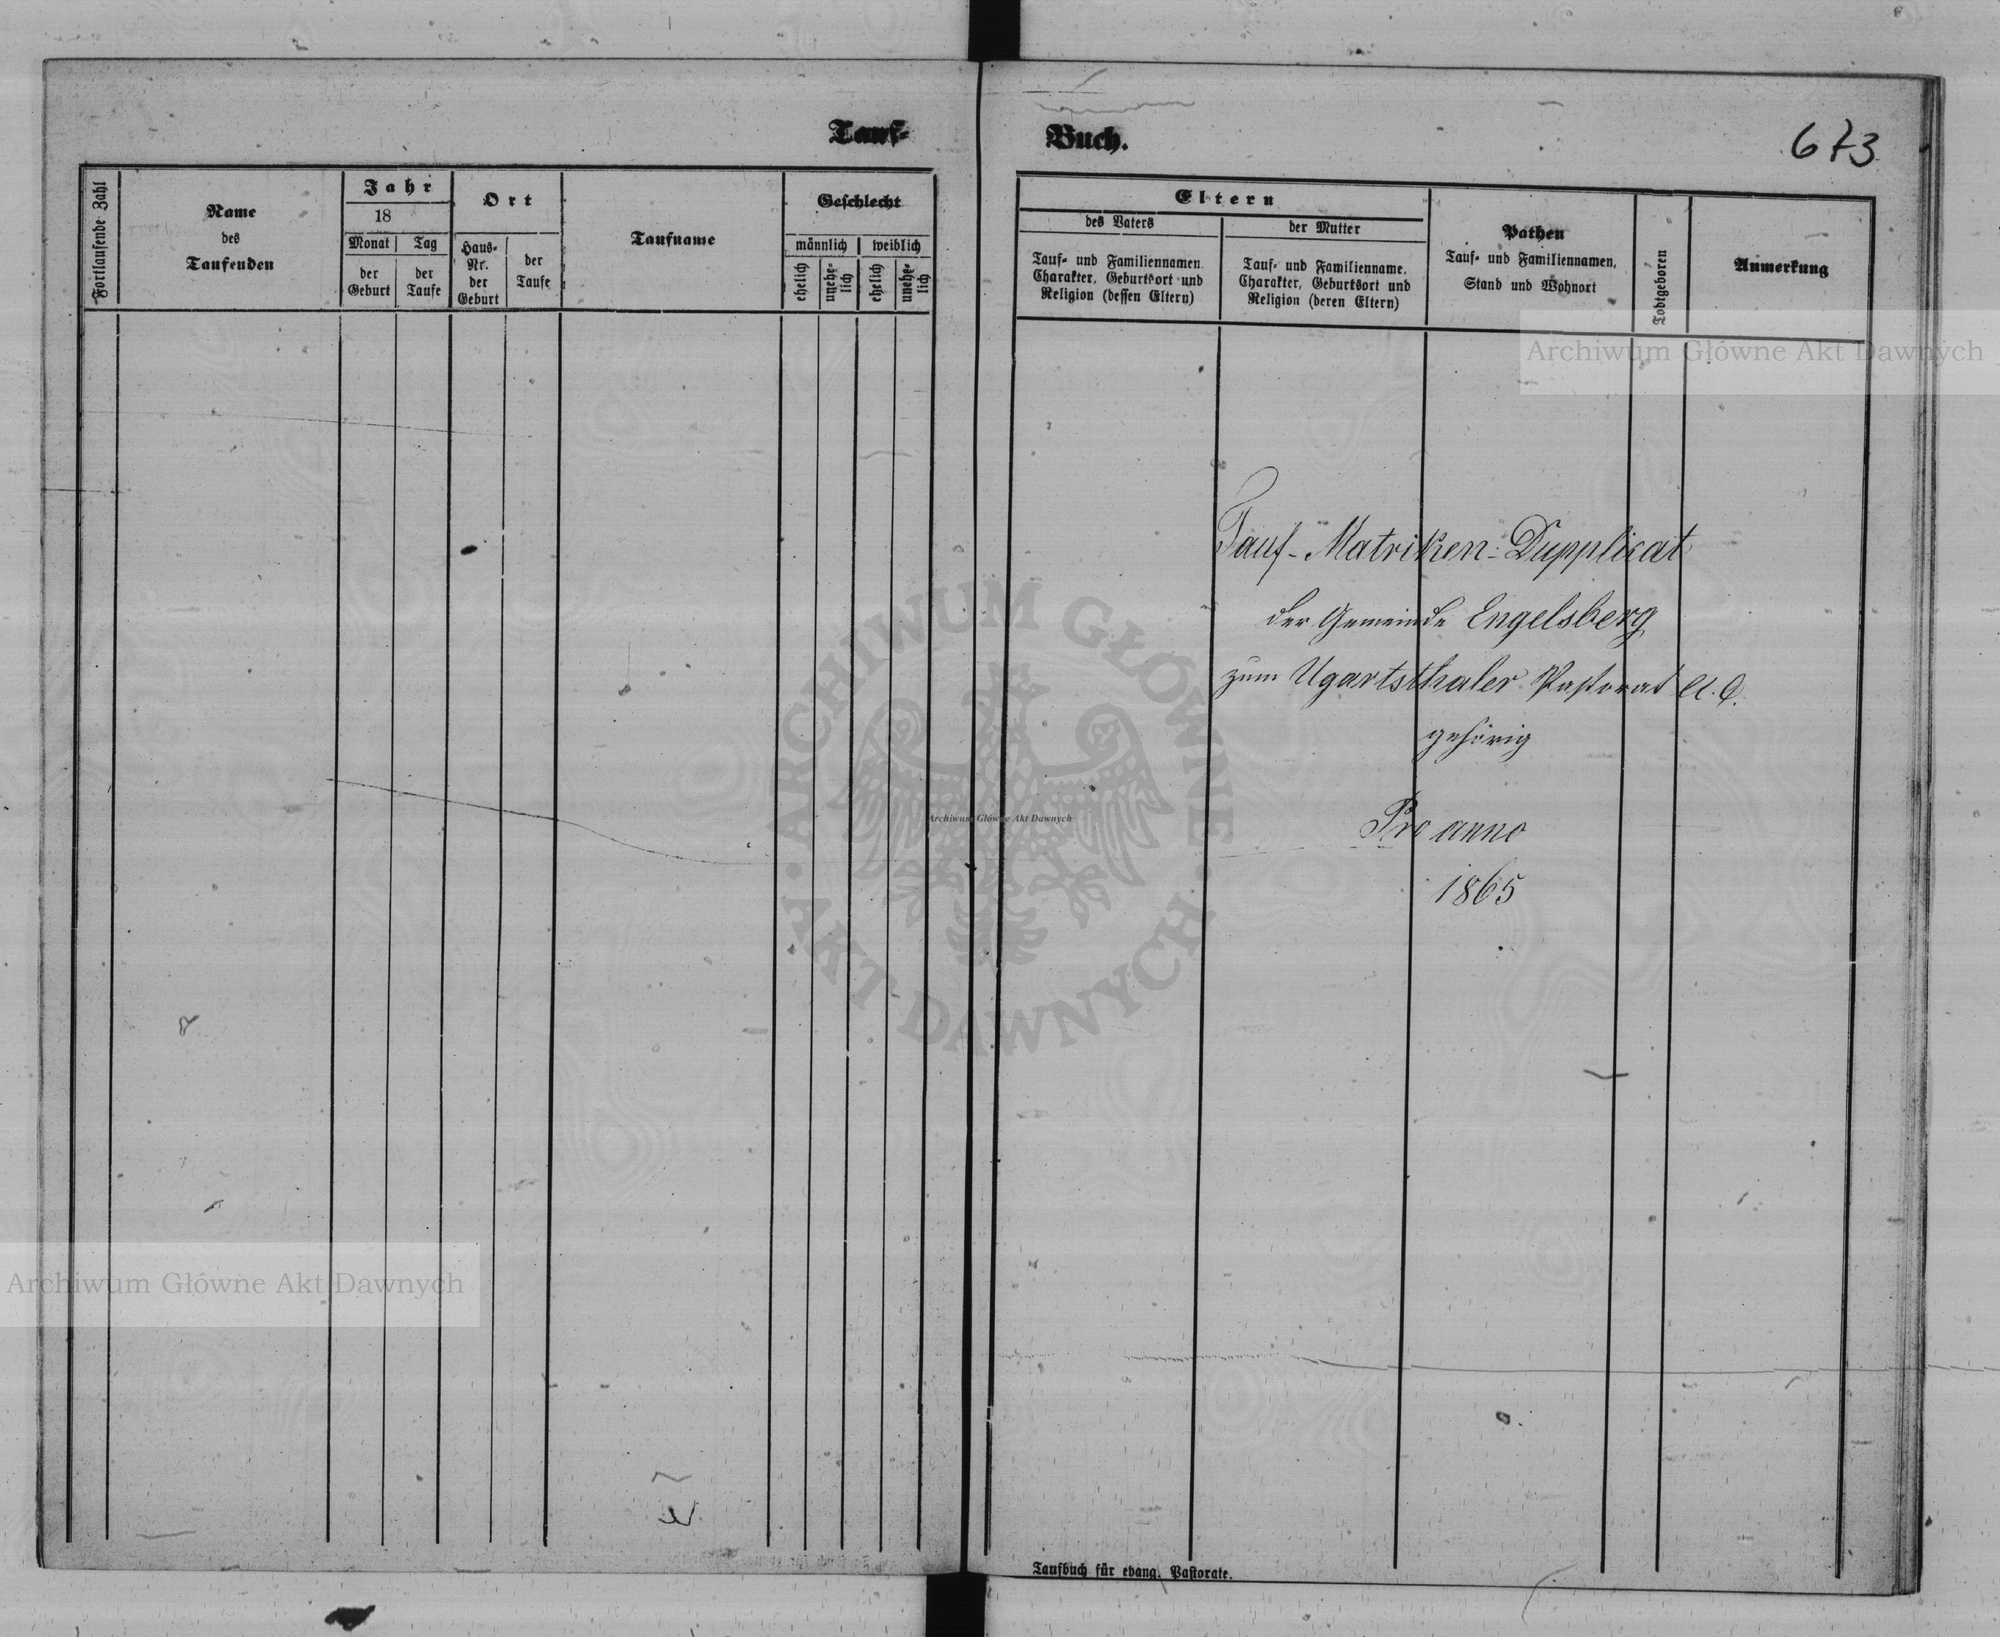 Tauf-
Fortlaufende Zahl
Name
des
Taufenden
Jahr
18
Monat
der
Geburt
Tag
der
Taufe
Ort
Haus-
Nr.
der
Geburt
der
Taufe
Taufname
Geschlecht
männlich
weiblich
ehelich
unehe-
lich
ehelich
unehe-
lich
Buch.
673
Eltern
des Vaters
Tauf- und Familiennamen,
Charakter, Geburtsort und
Religion (dessen Eltern)
der Mutter
Tauf- und Familienname,
Charakter, Geburtsort und
Religion (deren Eltern)
Pathen
Tauf- und Familiennamen,
Stand und Wohnort
Todtgeboren
Anmerkung
Tauf-Matriken-Dupplicat
der Gemeinde Engelsberg
zum Ugartsthaler Pastorat A. C.
gehörig
Pro anno
1865
Taufbuch für evang. Pastorate.
Archiwum Główne Akt Dawnych
ARCHIWUM GŁÓWNE
AKT DAWNYCH
Archiwum Główne Akt Dawnych
Archiwum Główne Akt Dawnych